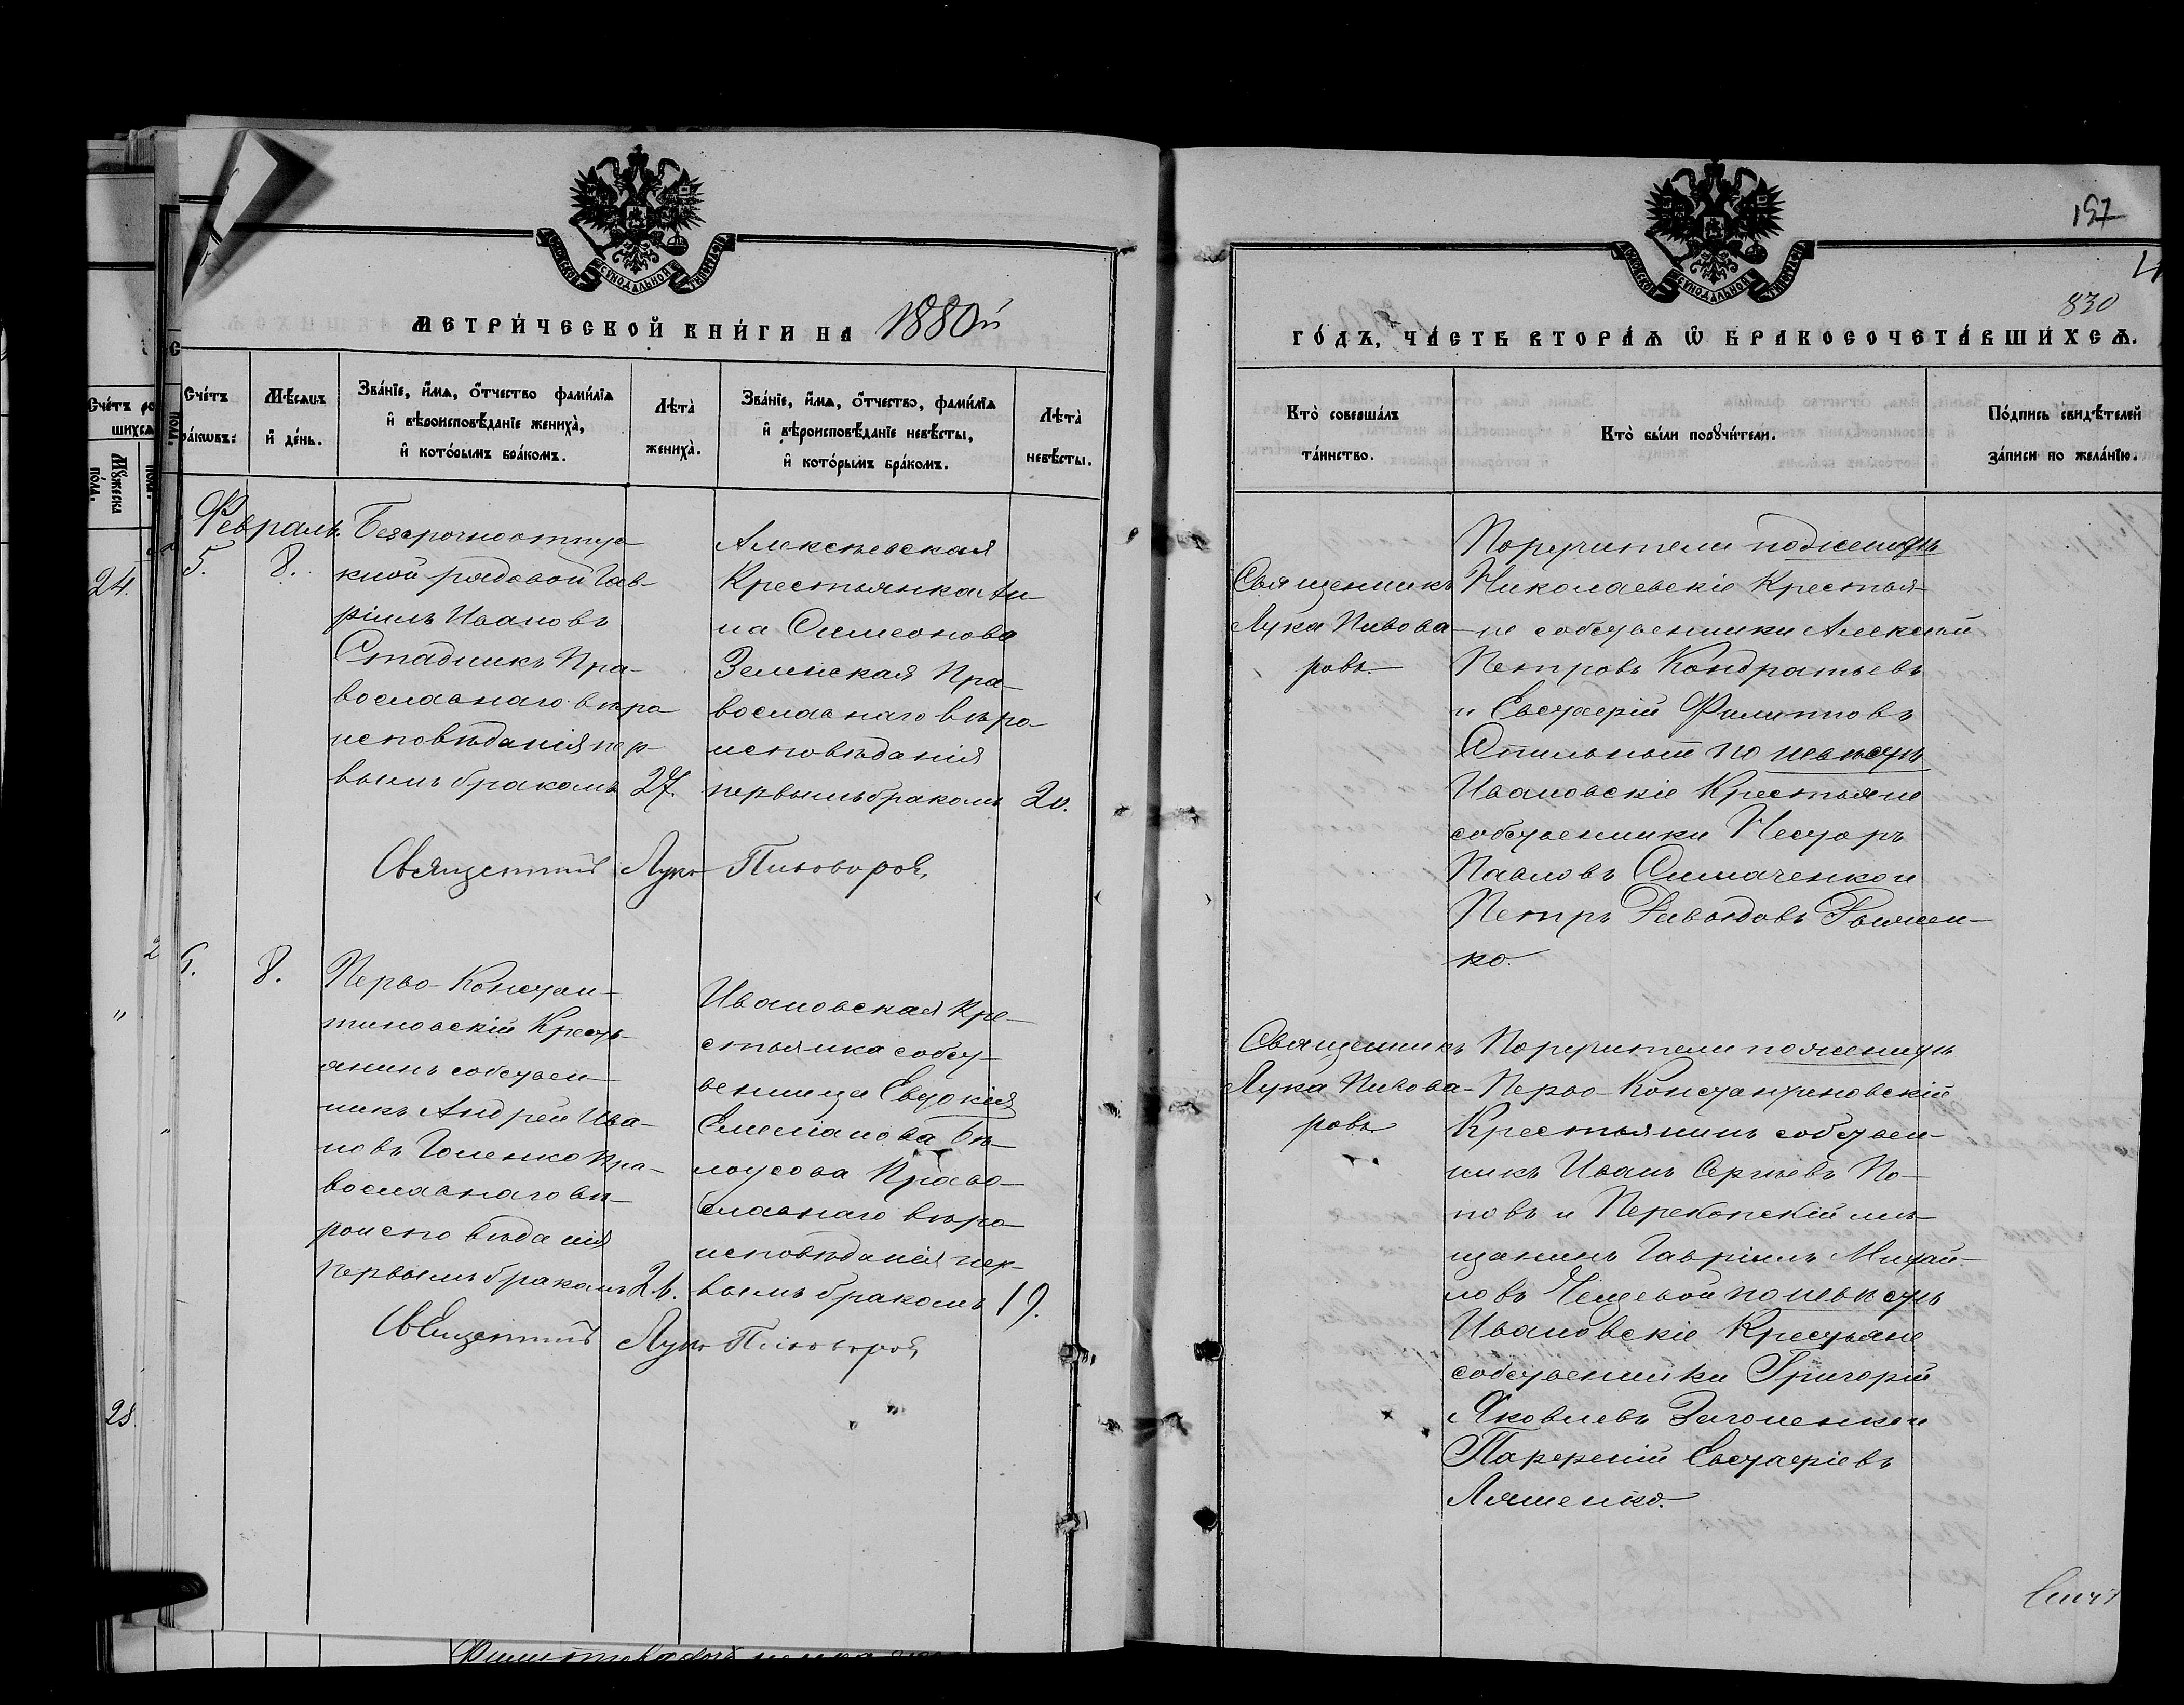 МЕТРИ́ЧЕСКОЙ КНИ́ГИ НА 1880й
Сче́тъ
ра́ковъ:
Мѣсѧцъ
и҆ де́нь.
Зва́нїе, и҆́мѧ, ѻ҆́тчество фами́лїѧ
и҆ вѣроисповѣ́данїе жениха̀,
и҆ кото́рымъ бра́комъ.
Лѣта̀
жениха̀.
Зва́нїе, и҆́мѧ, ѻ҆́тчество, фами́лїѧ
и҆ вѣроисповѣ́данїе невѣ́сты,
и҆ кото́рымъ бра́комъ.
Лѣта̀
невѣ́сты.
Февраль.
5.
8.
Безсрочноотпус-
кной рядовой Гав-
ріилъ Ивановъ
Стадникъ Пра-
вославнаго вѣро
исповѣданія пер-
вымъ бракомъ
27.
Алексѣевская
Крестьянка Ан-
на Симеонова
Зелинская Пра-
вославнаго вѣро-
исповѣданія
первымъ бракомъ
20.
Священникъ Лука Пивоваровъ
6.
8.
Перво-Констан-
тиновскій Кресть-
янинъ собствен-
никъ Андрей Ива-
новъ Гоменко Пра-
вославнаго вѣ-
роисповѣданія
первымъ бракомъ
21.
Ивановская Кре-
стьянка собст-
венница Евдокія
Емеліанова Бѣ-
лоусова Право-
славнаго вѣро-
исповѣданія пер-
вымъ бракомъ
19.
Священникъ Лука Пивоваровъ
24.
28.
197
830
ГО́ДЪ, ЧА́СТЬ ВТОРА́Ѧ Ѡ҆ БРАКОСОЧЕТА́ВШИХСѦ.
Кто̀ соверша́лъ
та́инство.
Кто̀ бы́ли порꙋчи́тели.
По́дпись свидѣ́телей
за́писи по жела́нїю.
Священникъ
Лука Пивова-
ровъ
Поручители по женихѣ
Николаевскіе Крестья-
не собственники Алексѣй
Петровъ Кондратьевъ
и Евстафій Филипповъ
по невѣстѣ
Ивановскіе Крестьяне
собственники Несторъ
Павловъ Симаченко и
Петръ Давыдовъ
ко.
Священникъ
Лука Пивова-
ровъ
Поручители по женихѣ
Перво-Константиновскій
Крестьянинъ собствен-
никъ Иванъ Сергѣевъ По-
повъ и Перекопскій мѣ-
щанинъ Гавріилъ Михай-
ловъ по невѣстѣ
Ивановскіе Крестьяне
собственники Григорій
Яковлевъ и
Парфеній Евстафіевъ
Ляшенко.